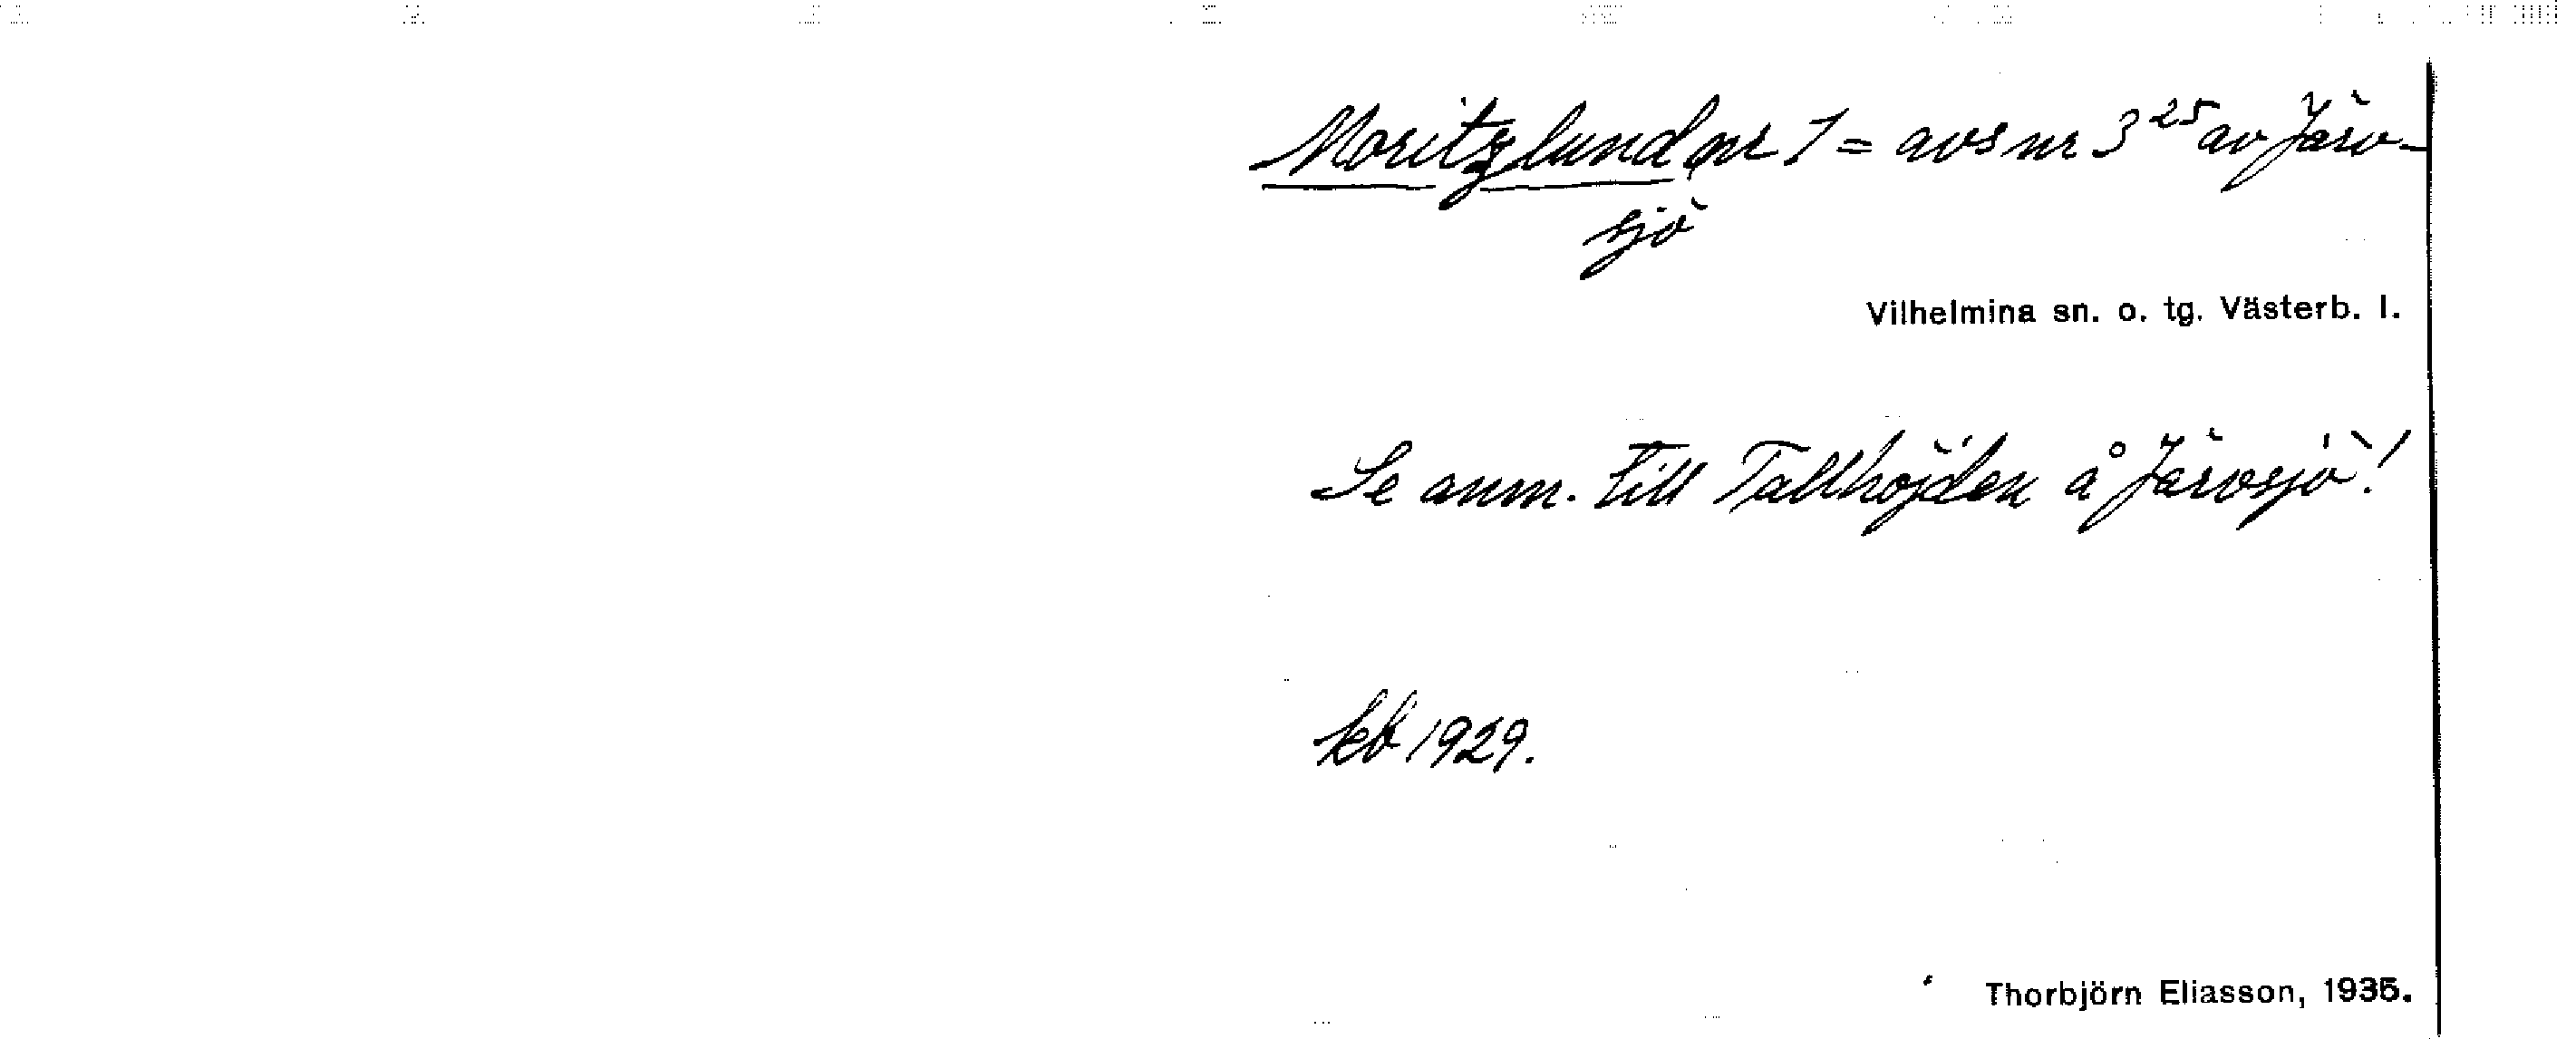 Moritzlund nr 1 = avs nr 3²⁵ av Järv-
sjö
Vilhelmina sn. o. tg. Västerb. l.
Se anm. till Tallhöjden å Järvsjö!
kb 1929.
Thorbjörn Eliasson, 1935.